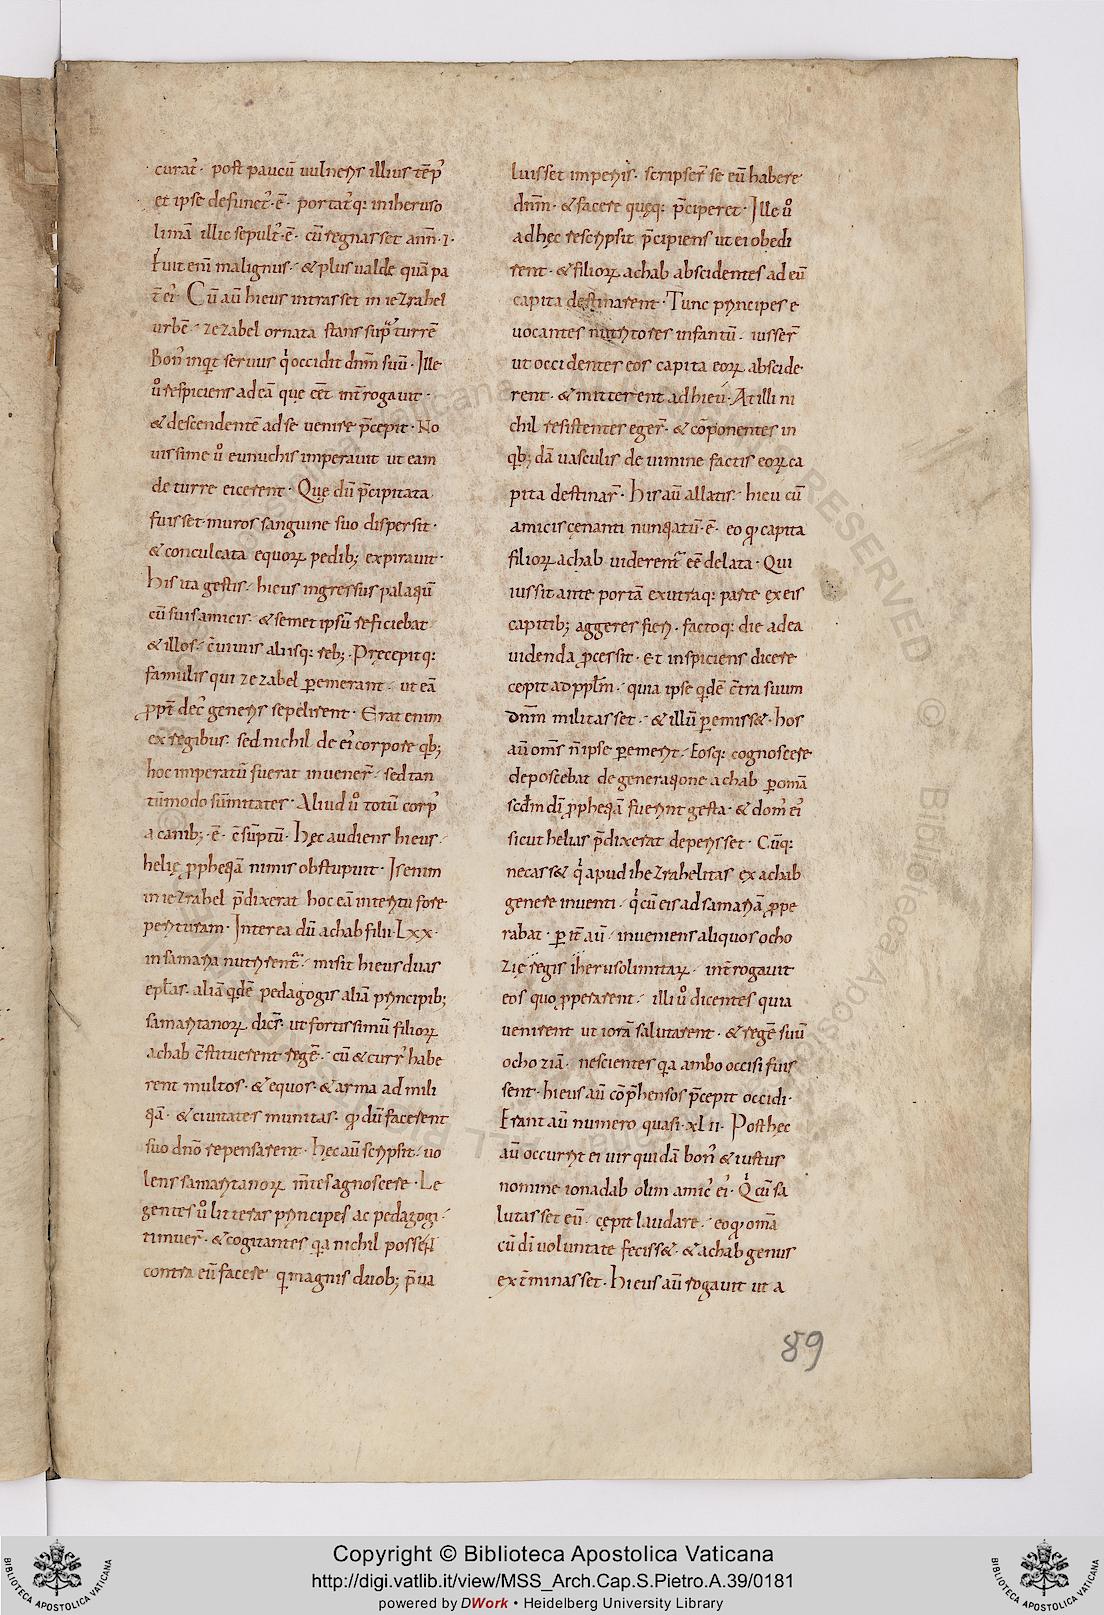 curat̄· post paucū uulneris illius tēp᷒
et ipse defunct᷒·ē· portat᷒q: in iheruso
limā illic sepult᷒·ē· cū regnasset ann̄·1·
Fuit enī malignus· & plus ualde quā pa
t̄ ei᷒ Cū aū hieus intrasset in iezrahel
urbē· zezabel ornata stans sup̄ turrē
Bon᷒ inqt seruus q̇ occidit dnm̄ suū· Ille
ů respiciens ad eā que eēt int̄rogauit·
& descendentē ad se uenire p̄cepit· No
uissime ů eunuchis imperauit ut eam
de turre eicerent· Quę dū p̄cipitata
fuisset muros sanguine suo dispersit·
& conculcata equoꝝ pedib; expirauit·
His ita gestis· hieus ingressus palatiū
cū suis amicis· & semet ipsū reficiebat
& illos· c̄uiuiis aliisq: reb;· Pręcepitq:
famulis qui zezabel ꝑemerant· ut eā
ꝓpt̄ dec᷒ generis sepelirent· Erat enim
ex regibus· sed nichil de ei᷒ corpore qb;
hoc imperatū fuerat inuener̄· sed tan
tūmodo sūmitates· Aliud ů totū corp᷒
a canib;·ē· c̄sūptū· Hęc audiens hieus·
helię ꝓphetiā nimis obstupuit· Is enim
in iezrahel p̄dixerat hoc eā interitu fore
perituram· Interea dū achab filii·Lxx·
in samaria nutrirent᷒· misit hieus duas
ep̄łas· aliā qdē pedagogis aliā principib;
samaritanoꝝ dicēs· ut fortissimū filioꝝ
achab c̄stituerent regē· cū & curr᷒ habe
rent multos· & equos· & arma ad mili
tiā· & ciuitates munitas· qd dū facerent
suo dnō repensarent· Hęc aū scripsit· uo
lens samaritanoꝝ m̄tes agnoscere· Le
gentes ů litteras principes ac pedagogi·
timuer̄· & cogitantes qa nichil possent
contra eū facere qi magnis duob; p̄ua
luisset imperiis· scripser̄ se eū habere
dnm̄· & facere quęq: p̄ciperet· Ille ů
ad hęc rescripsit p̄cipiens ut ei obedi
rent· & filioꝝ achab abscidentes ad eū
capita destinarent· Tunc principes e
uocantes nutritores infantū· iusser̄
ut occidentes eos capita eoꝝ abscide
rent· & mitterent ad hieū· At illi ni
chil resistentes eger̄· & cōponentes in
qb; dā uasculis de uimine factis eoꝝ ca
pita destinar̄· His aū allatis· hieu cū
amicis cęnanti nuntiatū·ē· eo qd capita
filioꝝ achab uiderent᷒ eē delata· Qui
iussit ante portā ex utraq: parte ex eis
capitib; aggeres fieri· factoq: die ad ea
uidenda ꝓcessit· Et inspiciens dicere
cepit ad ppłm· quia ipse qdē c̄tra suum
dnm̄ militasset· & illū ꝑemiss&· hos
aū om̄s n̄ ipse ꝑemerit· Eosq: cognoscere
deposcebat de generatione achab ꝑ omā
scdm̄ dī ꝓphetiā fuerint gesta· & dom᷒ ei᷒
sicut helias p̄dixerat deperisset· Cūq:
necass& q̇ apud ihezrahelitas ex achab
genere inuenti· q̇ cū eis ad samariā ꝓpe
rabat· ꝑ it̄ aū· inueniens aliquos ocho
zię regis iherusolimitaꝝ· int̄rogauit
eos quo ꝓperarent· illi ů dicentes quia
uenirent ut iorā salutarent· & regē suū
ochoziā· nescientes qa ambo occisi fuis
sent· hieus aū cōp̄hensos p̄cepit occidi·
Erant aū numero quasi·xLii· Post hęc
aū occurrit ei uir quidā bon᷒ & iustus
nomine ionadab olim amic᷒ ei᷒· Q̇ cū sa
lutasset eū· cępit laudare· eo qd omā
cū dī uoluntate feciss&· & achab genus
ext̄minasset· Hieus aū rogauit ut a
89
Copyright © Biblioteca Apostolica Vaticana
http://digi.vatlib.it/view/MSS_Arch.Cap.S.Pietro.A.39/0181
powered by DWork • Heidelberg University Library